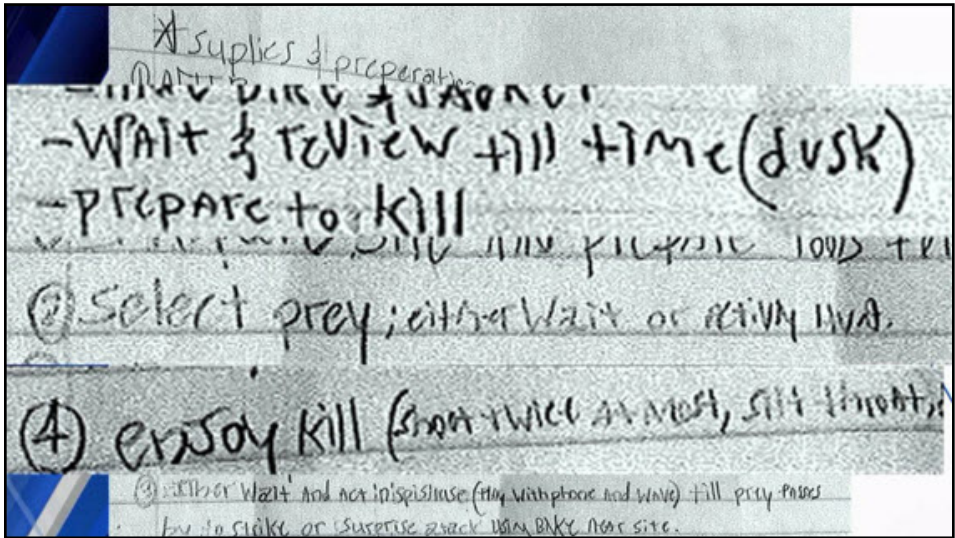 * suplies & preperation
- WAit & review till time (dusk)
- prepare to kill
② Select prey; either Wait or activly
④ enjoy kill (shoot twice at most, slit throat,
③ either Wait And Act (with phone and wave) till prey passes
by to strike or surprise using BIKE near site.